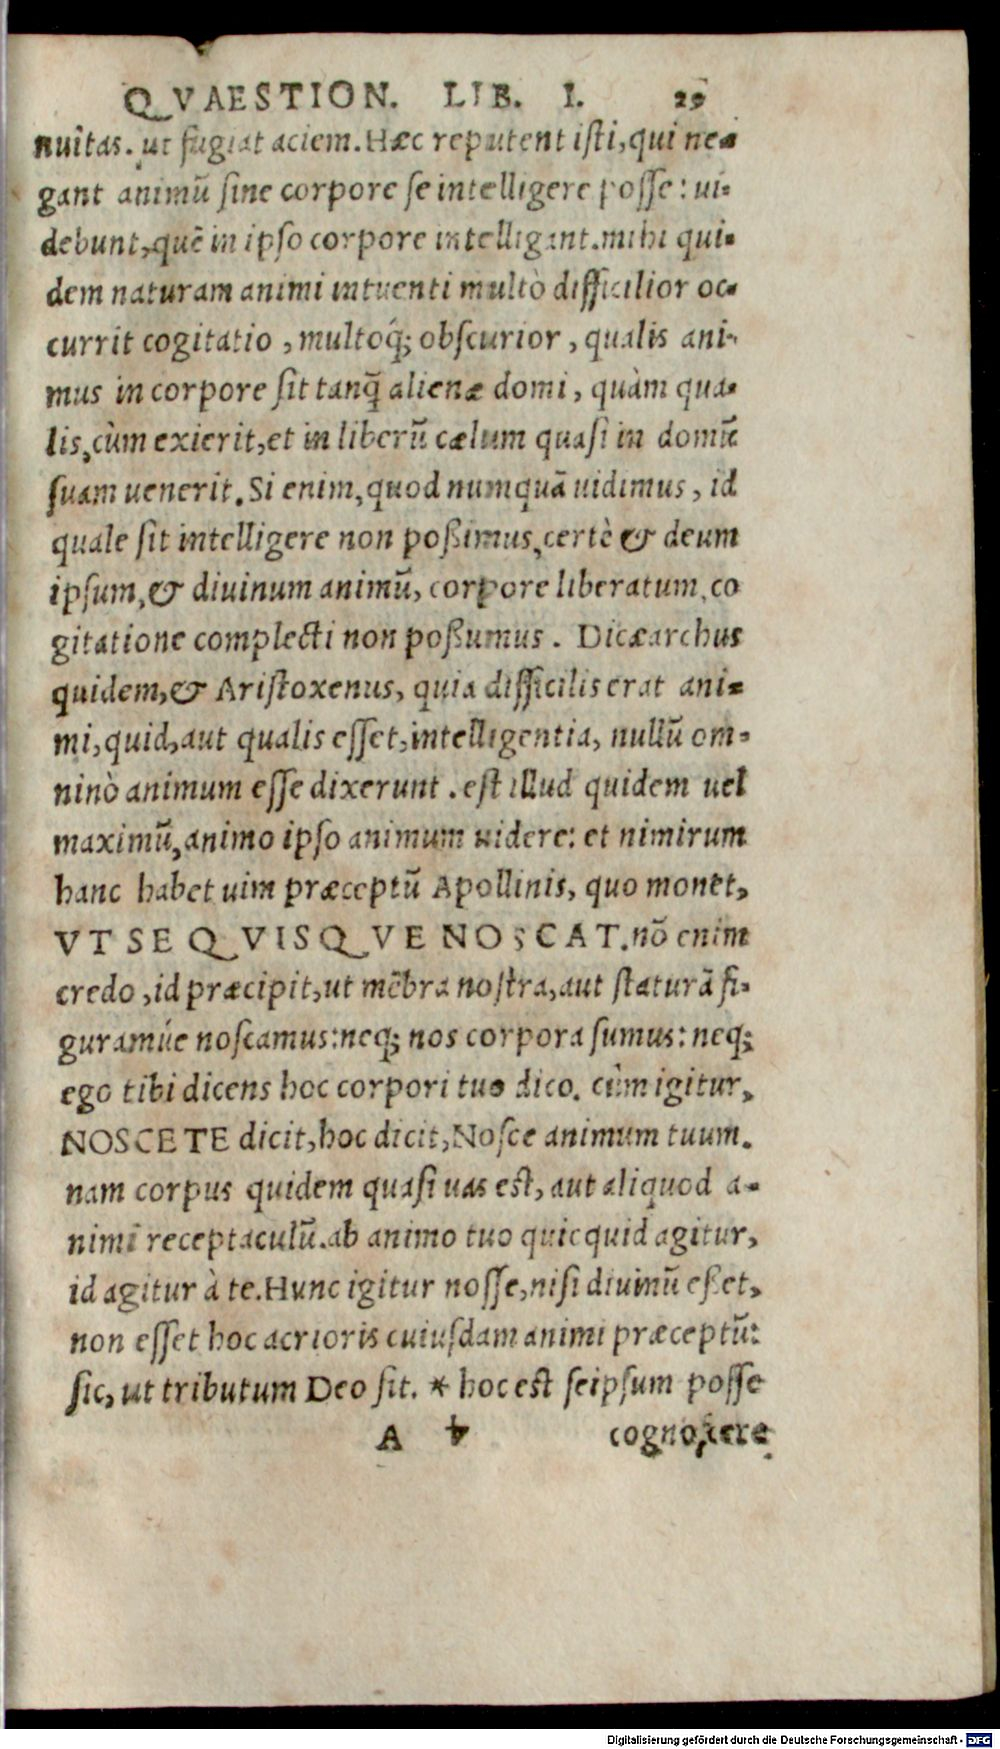 QVAESTION. LIB. I. 29
nuitas. ut fugiat aciem. Hæc reputent isti, qui ne-
gant animũ sine corpore se intelligere posse: ui-
debunt, quē in ipso corpore intelligant. mihi qui-
dem naturam animi intuenti multò difficilior oc-
currit cogitatio, multoq́; obscurior, qualis ani-
mus in corpore sit tanq̃ alienæ domi, quàm qua-
lis, cùm exierit, et in liberũ cælum quasi in domũ
suam uenerit. Si enim, quod numquã uidimus, id
quale sit intelligere non poßimus, certè & deum
ipsum, & diuinum animũ, corpore liberatum, co
gitatione complecti non poßumus. Dicæarchus
quidem, & Aristoxenus, quia difficilis erat ani-
mi, quid, aut qualis esset, intelligentia, nullũ om-
ninò animum esse dixerunt. est illud quidem uel
maximũ, animo ipso animum uidere: et nimirum
hanc habet uim præceptũ Apollinis, quo monet,
VT SE QVISQVE NOSCAT. nõ enim
credo, id præcipit, ut mẽbra nostra, aut staturã fi-
guramúe noscamus: neq; nos corpora sumus: neq;
ego tibi dicens hoc corpori tuo dico. cùm igitur,
NOSCE TE dicit, hoc dicit, Nosce animum tuum.
nam corpus quidem quasi uas est, aut aliquod a-
nimi receptaculũ. ab animo tuo quicquid agitur,
id agitur à te. Hunc igitur nosse, nisi diuinũ eßet,
non esset hoc acrioris cuiusdam animi præceptũ:
sic, ut tributum Deo sit. * hoc est seipsum posse
A
cognoscere
Digitalisierung gefördert durch die Deutsche Forschungsgemeinschaft - DFG